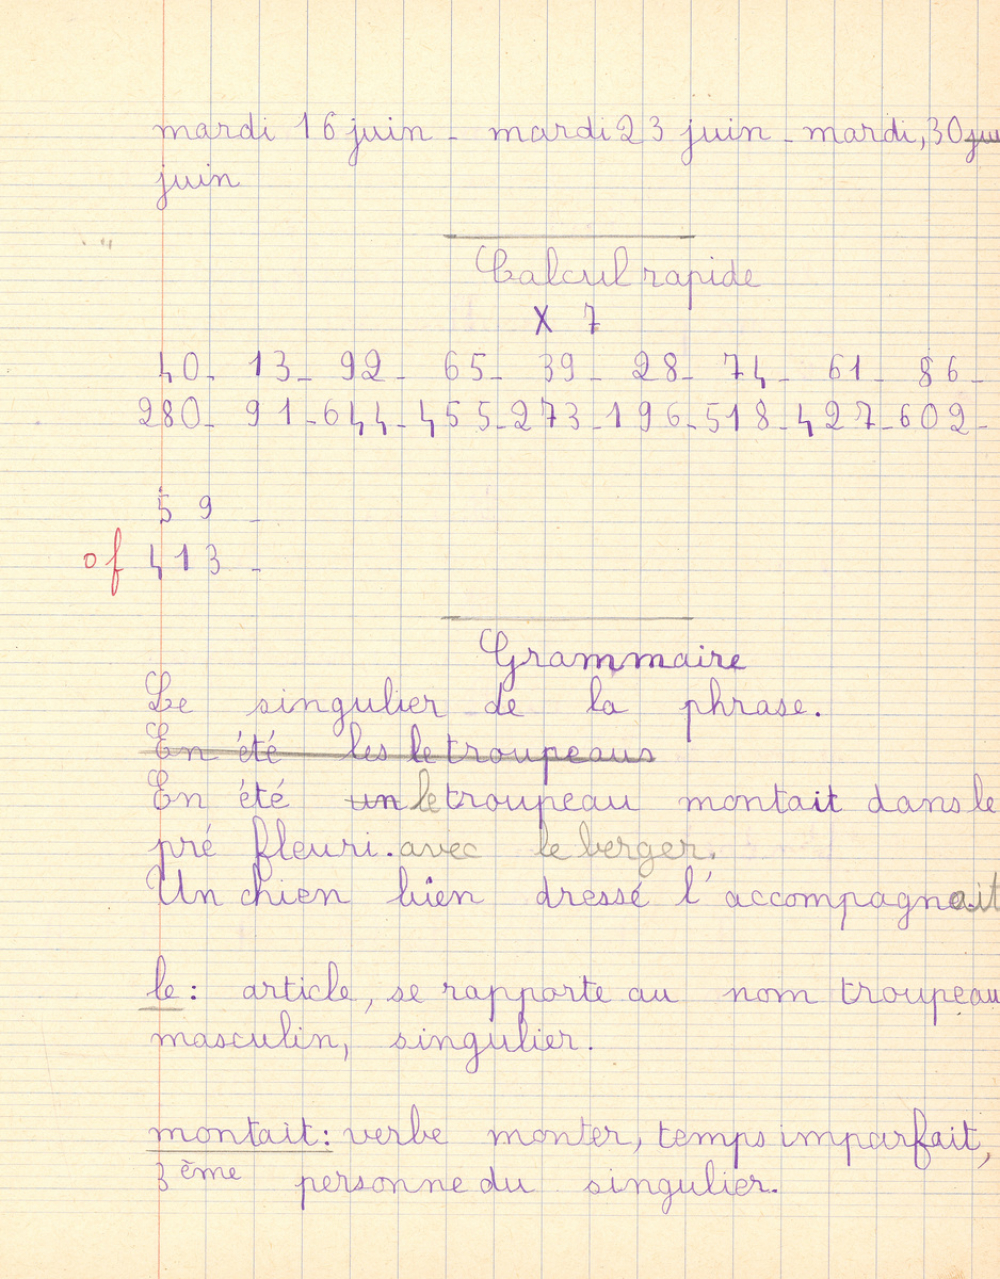 mardi 16 juin - mardi 23 juin - mardi, 30 jui
juin
Calcul rapide
X 7
40 - 13 - 92 - 65 - 39 - 28 - 74 - 61 - 86 -
280 - 91 - 644 - 455 - 273 - 196 - 518 - 427 - 602 -
59 -
of 413 -
Grammaire
Le singulier de la phrase.
En été les le troupeaus
En été un le troupeau montait dans le
pré fleuri. avec le berger.
Un chien bien dressé l'accompagnait
le : article, se rapporte au nom troupeau
masculin, singulier.
montait : verbe monter, temps imparfait,
3ème personne du singulier.